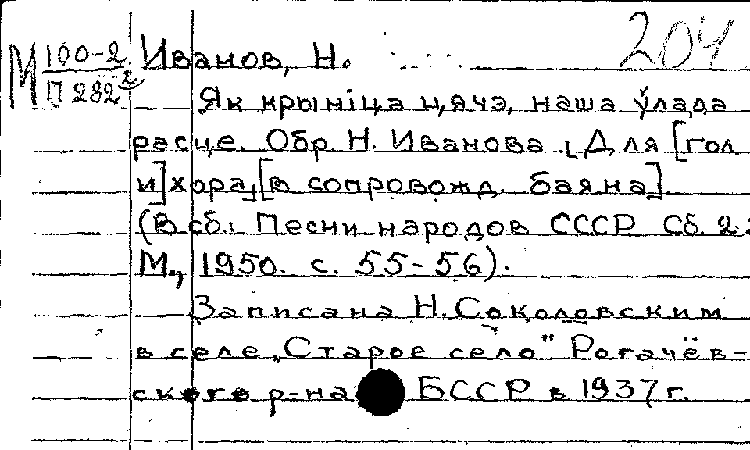 204
М 100-2
П 282 2
Иванов, Н.
Як крыніца цячэ, наша ўлада
расце. Обр. Н. Иванова. [Для [гол.
и] хора] [в сопровожд. баяна].
(В сб.: Песни народов СССР. Сб. 2.
М., 1950. с. 55-56).
Записана Н. Соколовским
в селе „Старое село" Рогачёв-
ского р-на БССР в 1937 г.